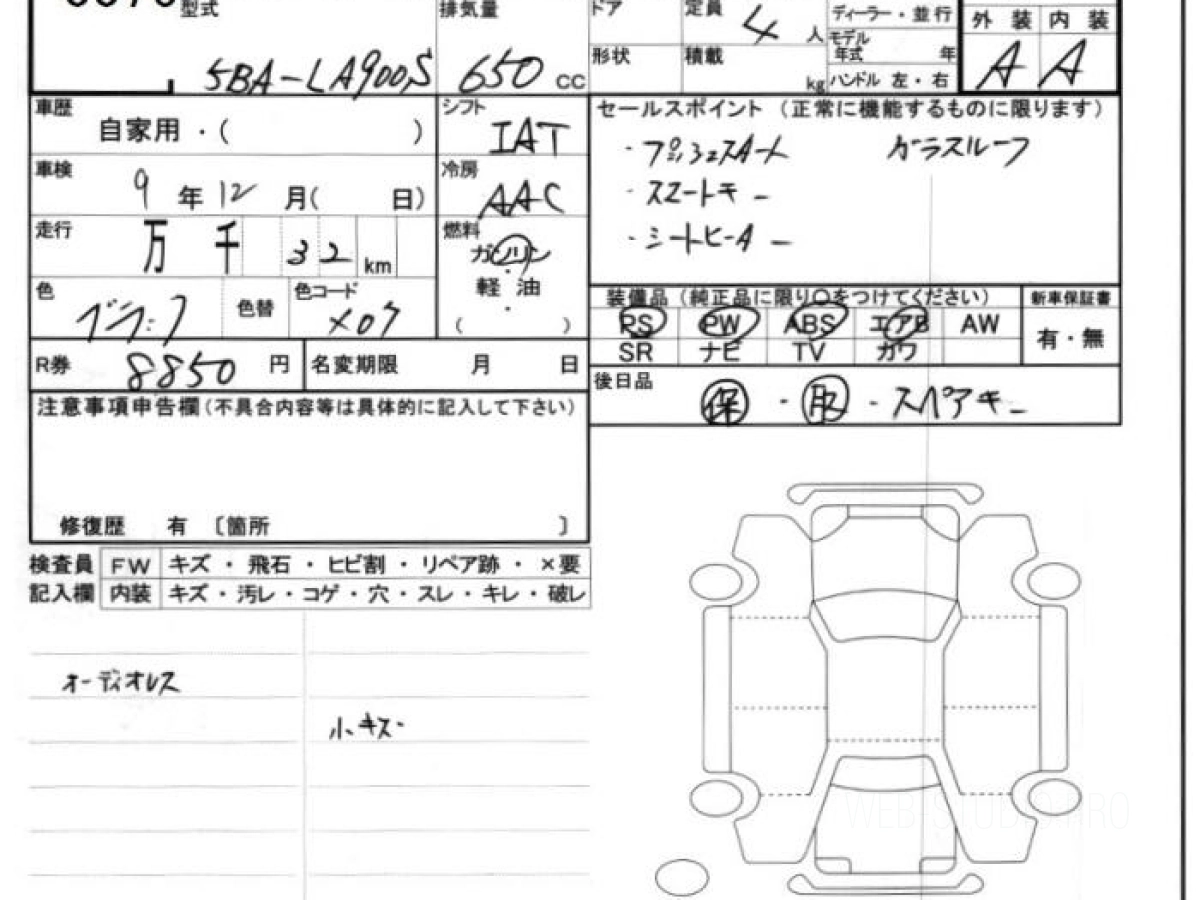 型式 排気量 ドア 定員 4 人 ディーラー・並行 外装 内装
5BA-LA900S 650 CC 形状 積載 kg モデル年式 年 ハンドル 左・右 A A
車歴 自家用・( ) シフト IAT セールスポイント (正常に機能するものに限ります)
・プッシュスタート ガラスルーフ
車検 9 年 12 月( 日) 冷房 AAC ・スマートキー
走行 万 千 32 km 燃料 ガソリン ・シートヒーター
軽油
・
( )
色 ブラック 色替 色コード X07
装備品 (純正品に限り○をつけてください) 新車保証書
PS PW ABS エアB AW 有・無
SR ナビ TV カワ
R券 8850 円 名変期限 月 日
後日品 保・取・スペアキー
注意事項申告欄(不具合内容等は具体的に記入して下さい)
修復歴 有 〔箇所 〕
検査員 FW キズ・飛石・ヒビ割・リペア跡・×要
記入欄 内装 キズ・汚レ・コゲ・穴・スレ・キレ・破レ
オーディオレス
小キズ
WEB-STUDIO PRO